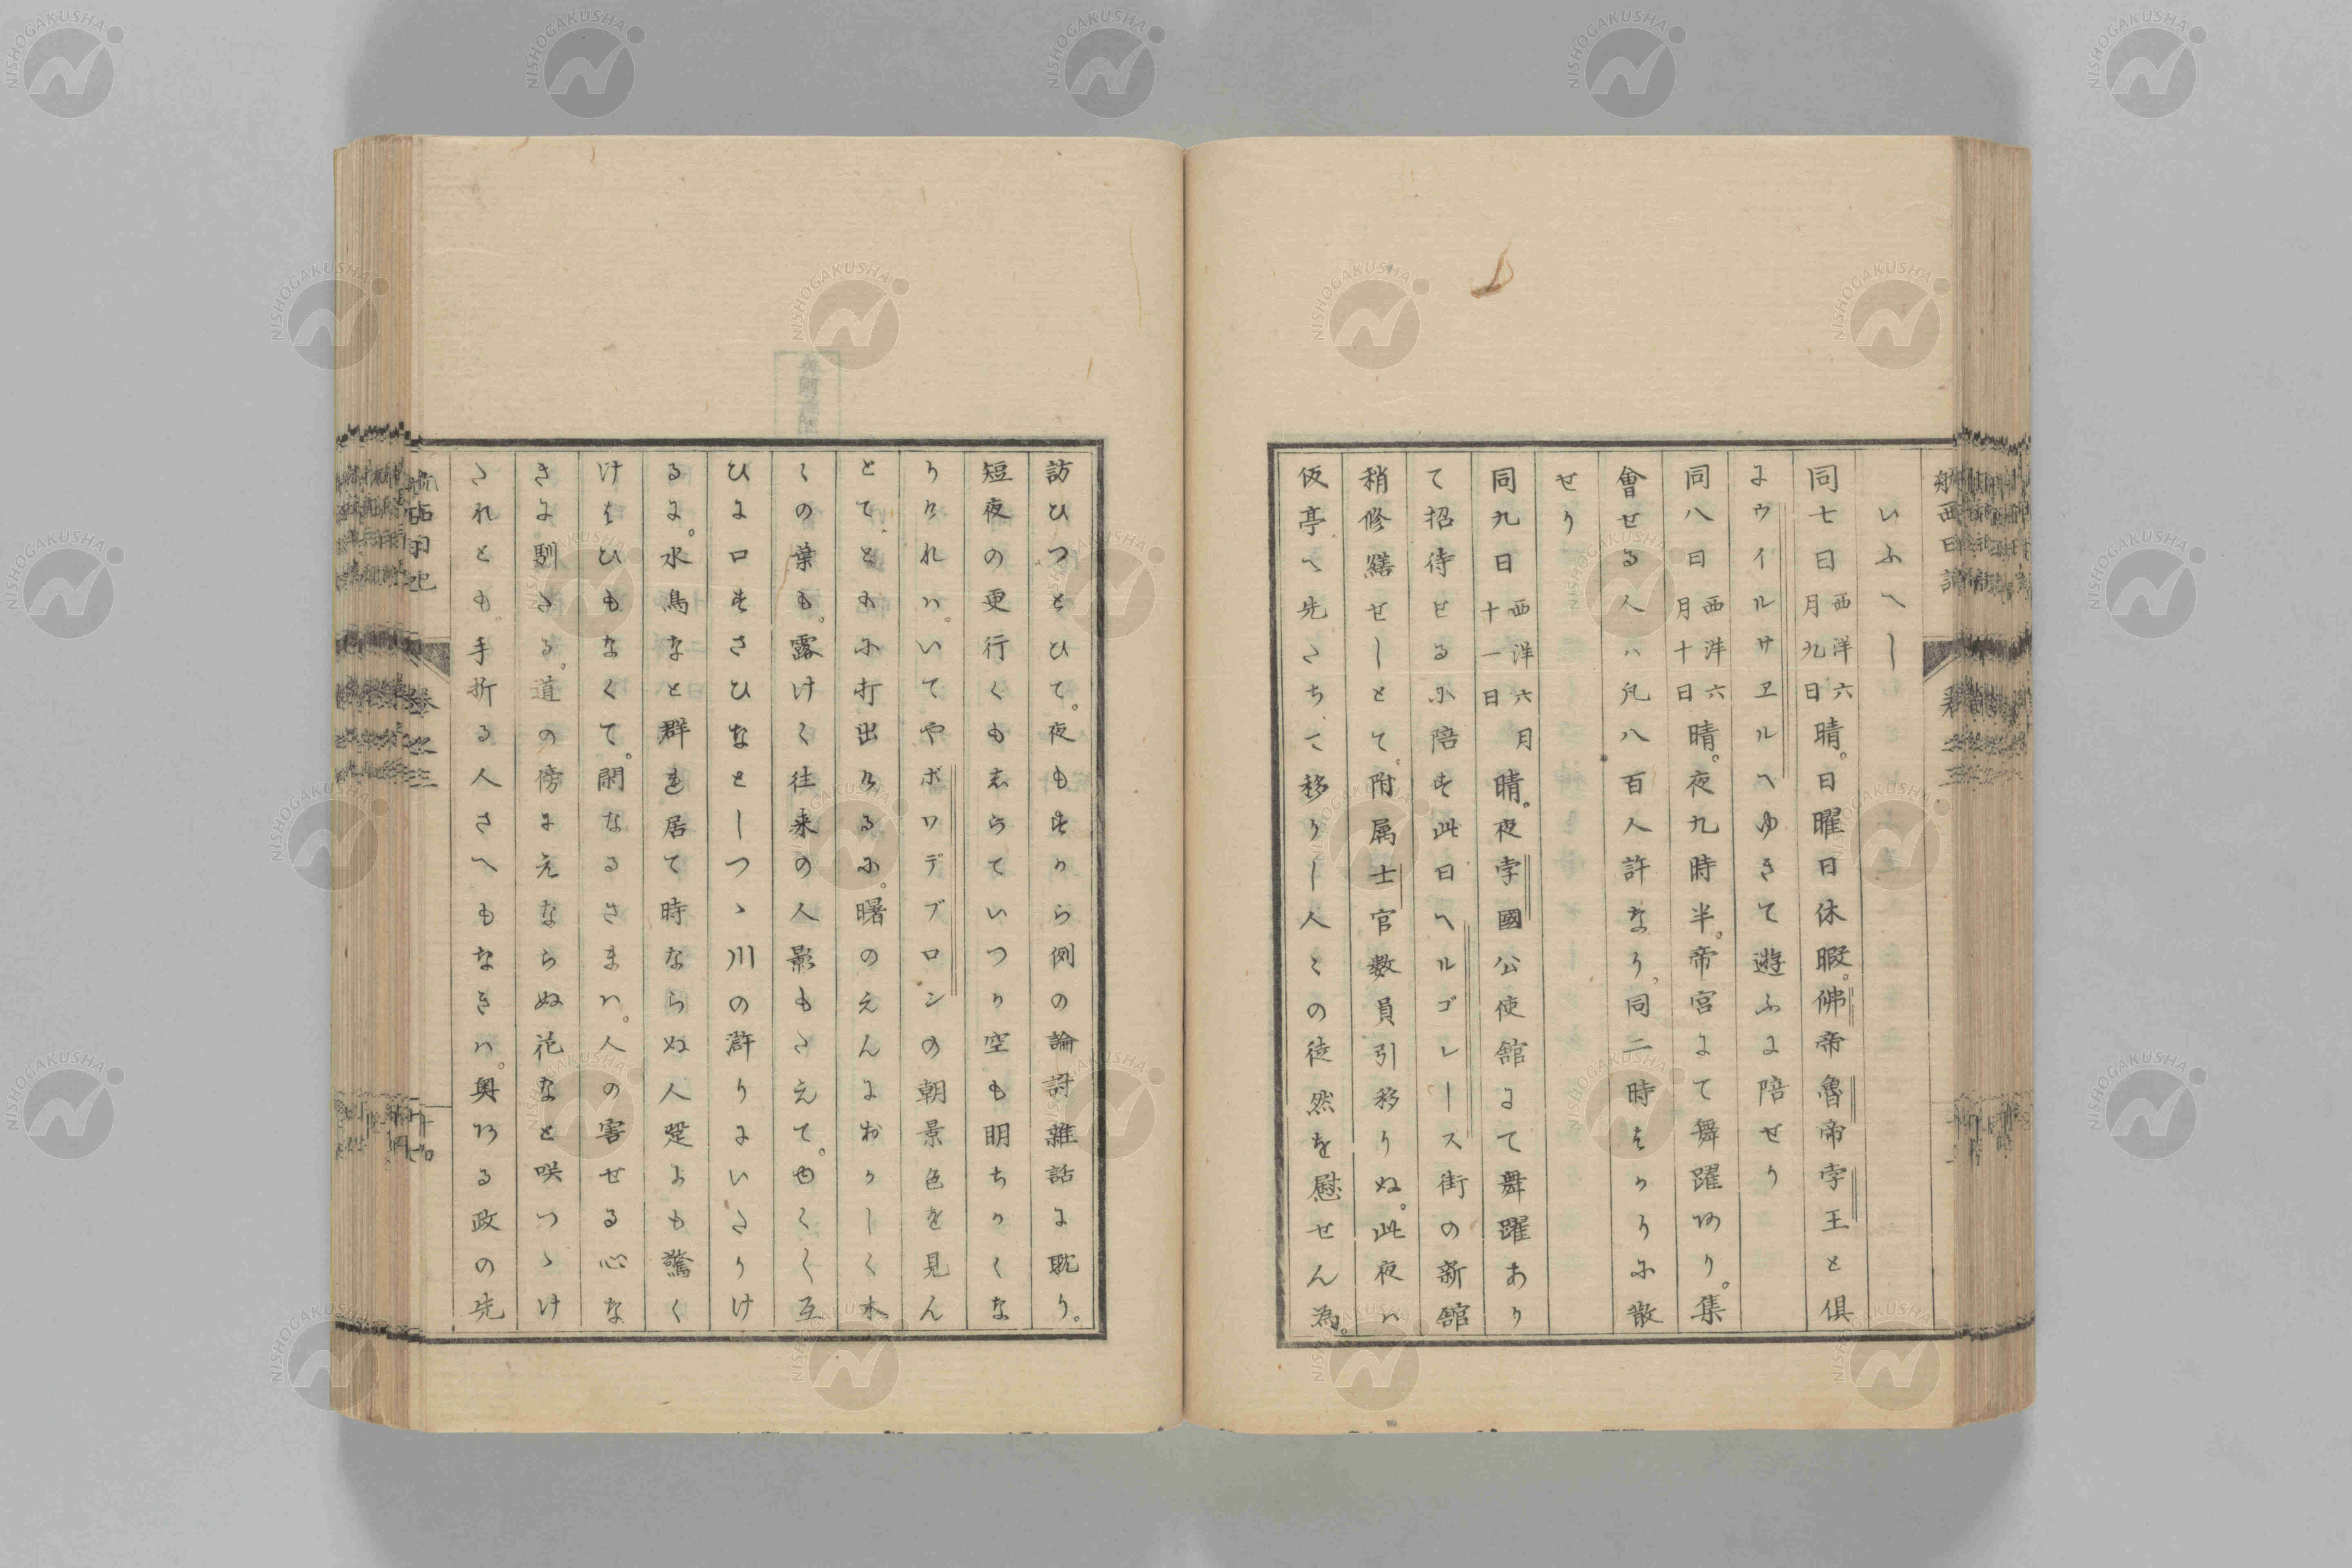 いふへし
同七日西洋六月九日晴。日曜日休暇。佛帝魯帝孛王と倶
にウイルサヱルへゆきて遊ふに陪せり
同八日西洋六月十日晴。夜九時半。帝宮にて舞躍あり。集
會せる人ハ凡八百人許なり。同二時はかりに散
せり
同九日西洋六月十一日晴。夜孛國公使舘にて舞躍あり
て招待せるに陪す此日ヘルゴレース街の新舘
稍修繕せしとて。附属士官数員引移りぬ。此夜ハ
仮亭へ先たちて移りし人々の徒然を慰せん為。
訪ひつとひて。夜もすから例の論討雑話に耽り。
短夜の更行くも志らていつか空も明ちかくな
りけれハ。いてやボワデブロンの朝景色を見ん
とて、ともに打出けるに。曙のえんにおかしく木
々の葉も。露けく往来の人影もたえて。やくく互
ひに口すさひなとしつゝ川の滸りにいたりけ
るに。水鳥なと群を居て時ならぬ人跫よも驚く
けはひもなくて。閑なるさまハ。人の害せる心な
きに馴たる。道の傍にえならぬ花なと咲つゝけ
たれとも。手折る人さへもなきハ。奥ある政の先
航西日記
巻之三